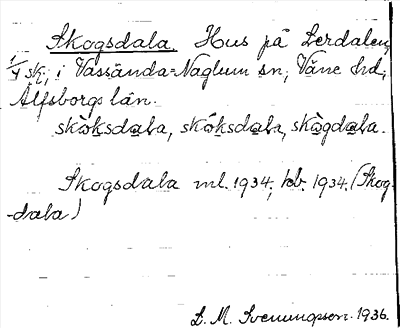 Skogsdala. Hus på Lerdalen,
1/4 sk., i Vassända-Naglum sn, Väne hd,
Älfsborgs län.
skòksdala, skóksdala, skògdala.
Skogsdala ml. 1934, kb. 1934. (Skog-
-dala)
L. M. Svenungsson. 1936.